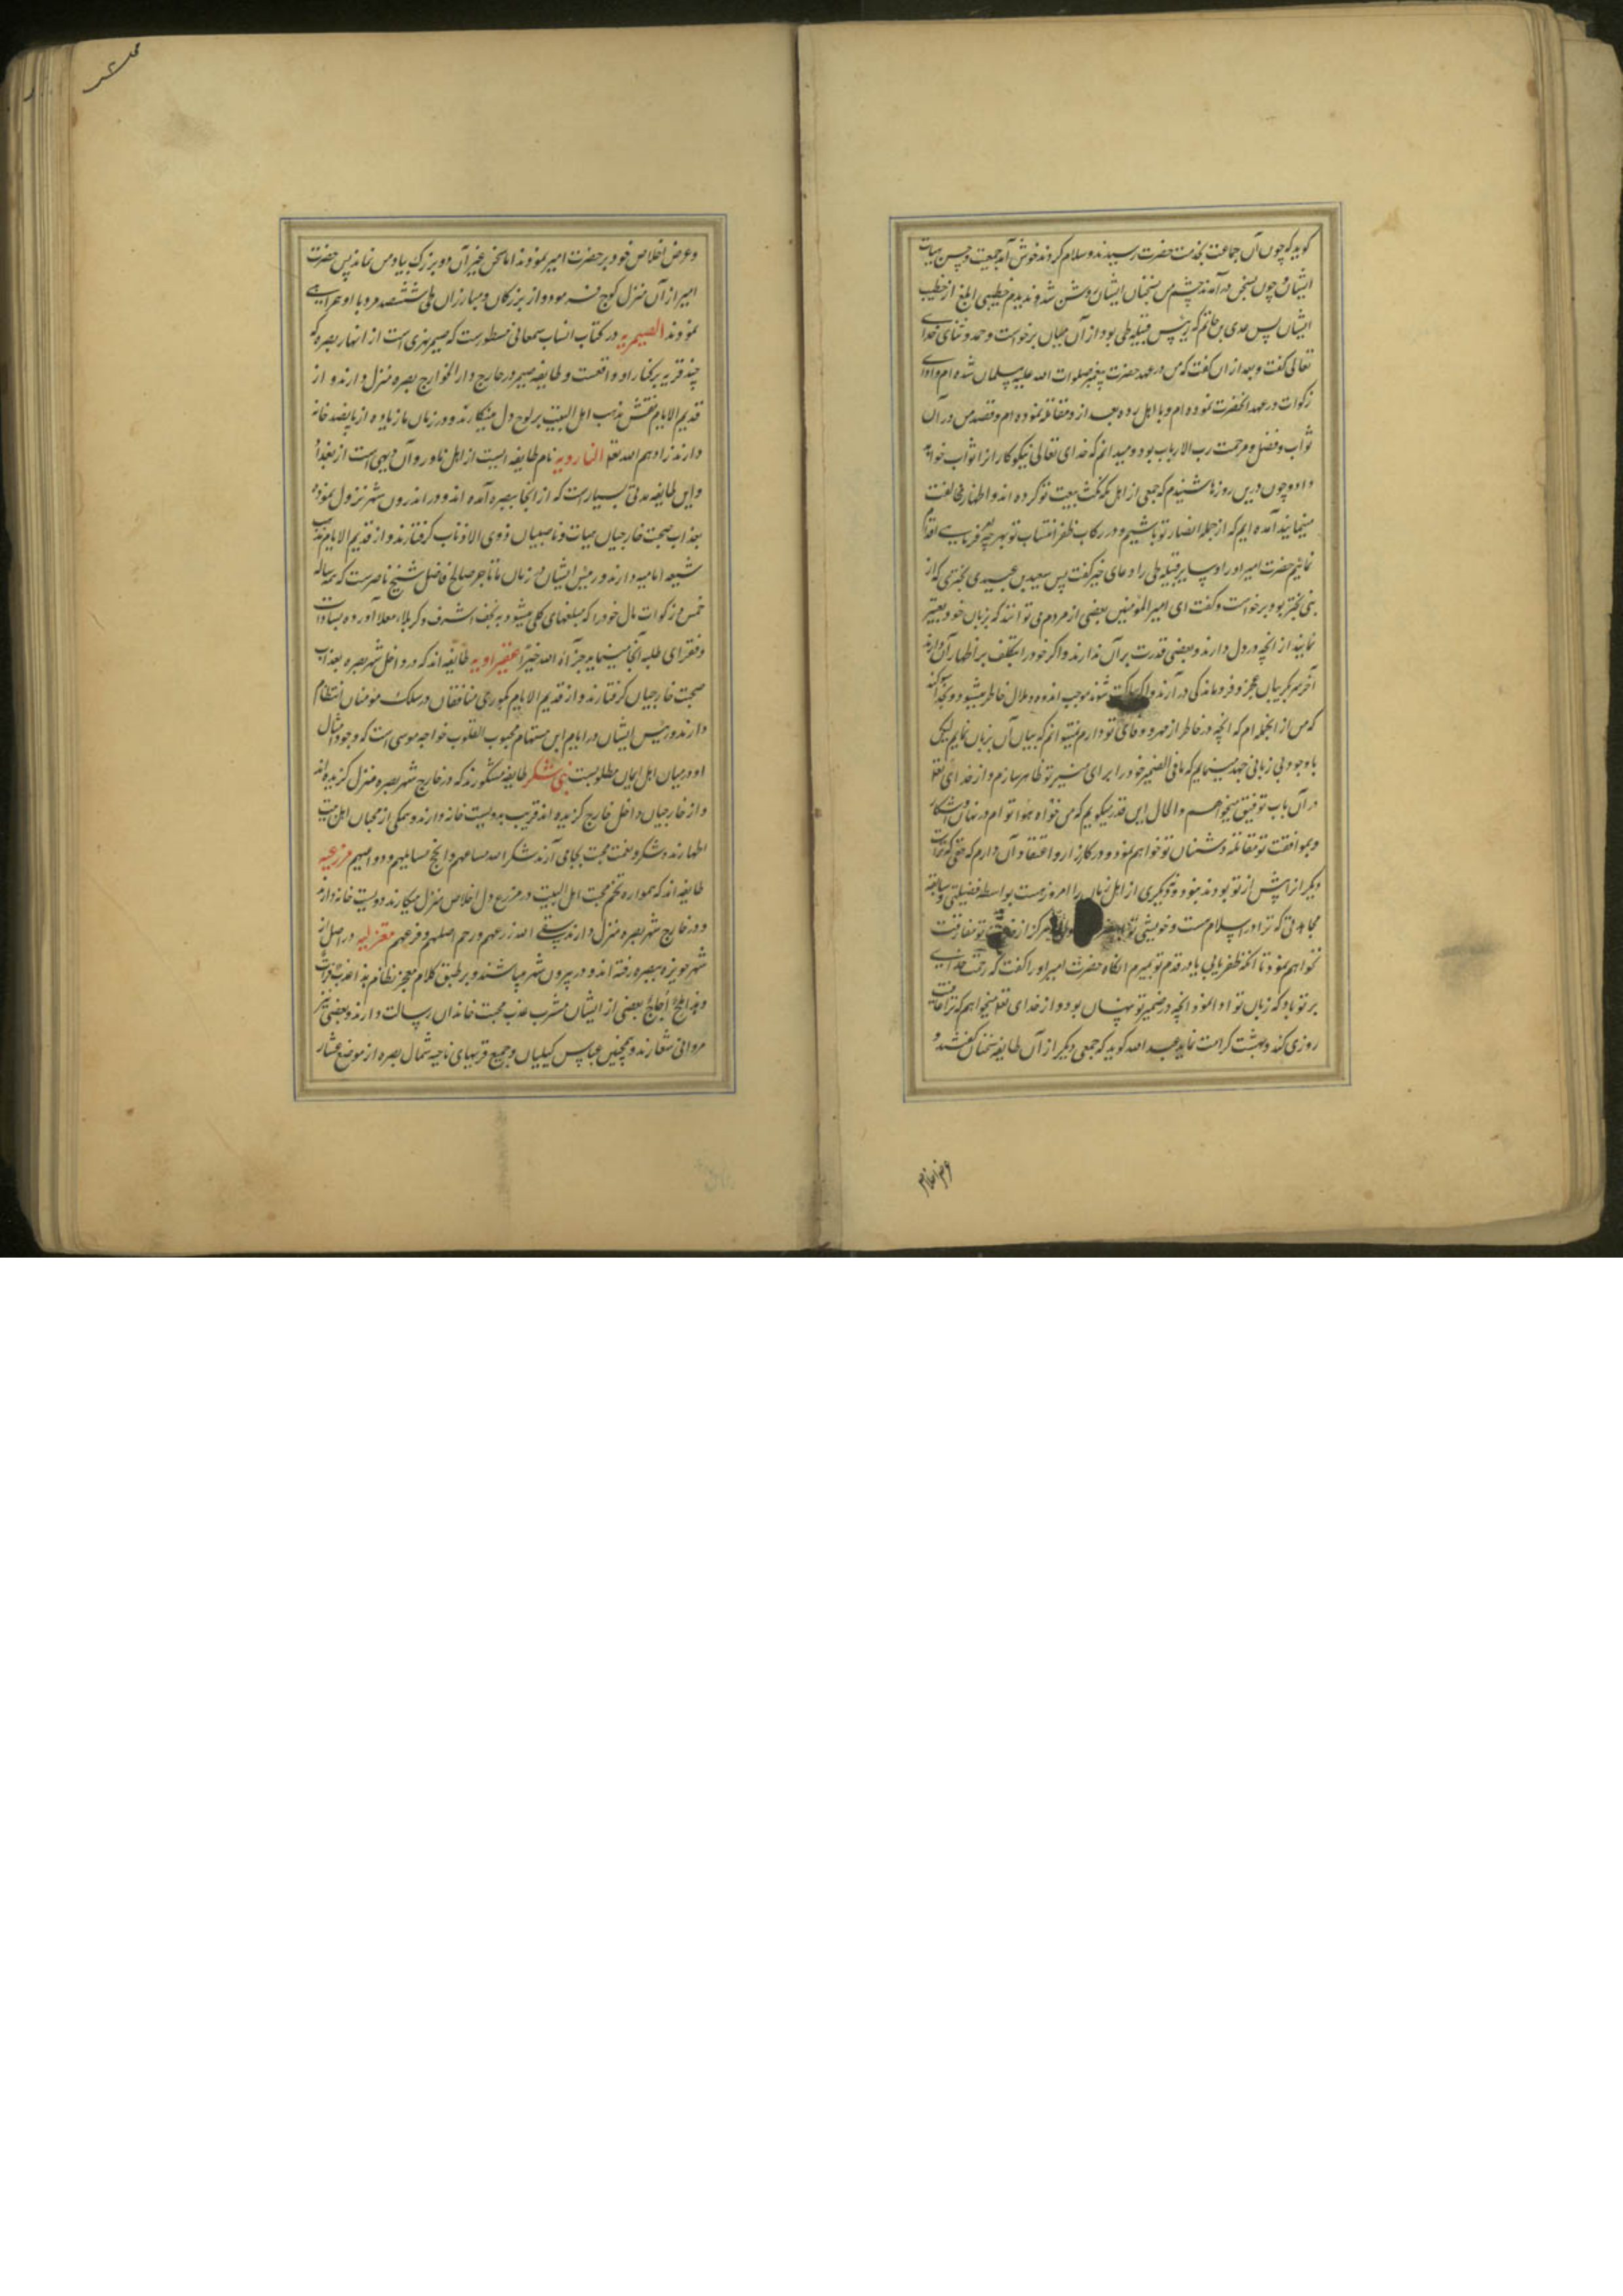 گوید که چون آن جماعت بخدمت حضرت رسیدند و سلام کردند خوش آمد جمعیت و حسن هیات
ایشان و چون بسخن درآمدند چشم من بسخنان ایشان روشن شد و ندیدم خطیبی ابلغ از خطیب
ایشان پس عدی بن حاتم که رئیس قبیله طی بود از آن میان برخواست و حمد و ثنای خدای
تعالی گفت و بعد از ان گفت که من در عهد حضرت پیغمبر صلوات الله علیه مسلمان شده ام و ادای
زکوات در عهد آنحضرت نموده ام و با اهل رده بعد از و مقاتله نموده ام و قصد من در آن
ثواب و فضل و مرحمت رب الارباب بود و میدانم که خدای تعالی نیکوکار انرا ثواب خواهد
داد و چون درین روزها شنیدم که جمعی از اهل مکه نکث بیعت تو کرده اند و اظهار مخالفت
مینمایند آمده ایم که از جمله انصار تو باشیم و در رکاب ظفر انتساب تو بهر چه فرمایی اقدام
نمائیم حضرت امیر او را و سایر قبیله طی را دعای خیر گفت پس سعید بن عبید بحتری که از
بنی بحتر بود برخواست و گفت ای امیر المؤمنین بعضی از مردم می توانند که بزبان خود تعبیر
نمایند از آنچه در دل دارند و بعضی قدرت بر آن ندارند و اگر خود را بتکلف بر اظهار آن دارند
آخر سر بگریبان عجز و فروماندگی در آرند و اگر ساکت شوند موجب اندوه و ملال خاطر میشود و بخدا سوگند
که من از آنجمله ام که آنچه در خاطر از مهر و وفای تو دارم نمیتوانم که بیان آن بزبان نمایم لیکن
با وجود بی زبانی جهد مینمایم که ما فی الضمیر خود را برای منیر تو ظاهر سازم و از خدای تعالی
در آن باب توفیق میخواهم والحال این قدر میگویم که من خواه هوا تو ام در نهان و آشکار
و بموافقت تو مقاتله دشمنان تو خواهم نمود و در کارزار و اعتقاد آن دارم که حقی که تراست
دیگر از پیش از تو بودند نبود و دیگری از اهل زمان را امروز نیست بواسطه فضیلتی و سابقه
مجاهدتی که ترا در اسلام ست و خویشی هرگز از تو مفارقت
نخواهم نمود تا آنکه ظفر یابی یا در قدم تو بمیرم آنگاه حضرت امیر او را گفت که رحمت خدای
بر تو باد که زبان تو ادا نمود آنچه در ضمیر تو پنهان بود و از خدای تعالی میخواهم که ترا عاقبت
روزی کند و بهشت کرامت نماید عبد الله گوید که جمعی دیگر از آن طایفه سخنان گفتند و
و عرض اخلاص
و عرض اخلاص خود بر حضرت امیر نمودند اما سخن غیر آن دو بزرگ بیاد من نماند پس حضرت
امیر از آن منزل کوچ فرمود و از بزرگان و مبارزان طی ششصد مرد با او همراهی
نمودند الصیمریه در کتاب انساب سمعانی مسطورست که صیمر نهری است از انهار بصره که
چند قریه بر کنار او واقعست و طایفه صیمر در خارج دار الخوارج بصره منزل دارند و از
قدیم الایام نقش مذهب اهل البیت بر لوح دل مینگارند و در زبان ما زیاده از پانصد خانه
دارند زادهم الله تعالی الناردیه نام طایفه ایست از اهل ناور و آن دیهی است از بغداد
و این طایفه مدتی بسیارست که از آنجا ببصره آمده اند و در اندرون شهر نزول نموده
بعذاب صحبت خارجیان و ناصبیان ذوی الاذناب گرفتارند و از قدیم الایام مذهب
شیعه امامیه دارند و رئیس ایشان در زمان ما تاجر صالح فاضل شیخ ناصرست که همه ساله
خمس و زکوات مال خود را که مبلغهای کلی میشود به نجف اشرف و کربلاء معلا آورده بسادات
و فقرای طلبه آنجا مینماید جزاه الله خیرا عقیراویه طایفه اند که در داخل شهر بصره بعذاب
صحبت خارجیان گرفتارند و از قدیم الایام بکوری منافقان در سلک مؤمنان انتظام
دارند و رئیس ایشان در ایام این مستهام محبوب القلوب خواجه موسی است که وجود امثال
او در میان اهل ایمان مطلوبست بنی شکر طایفه مشکورند که در خارج شهر بصره منزل گزیده اند
و از خارجیان داخل خارج گزیده اند قریب بدویست خانه دارند و همگی از محبان اهل بیت
اطهارند و شکر و نعمت محبت بجا می آرند شکر الله مساعیهم و انجح مسایلهم و دواعیهم مزرعیه
طایفه اند که همواره تخم محبت اهل البیت در مزرع دل اخلاص منزل میکارند دویست خانه دارند
و در خارج شهر بصره منزل دارند سقی الله زرعهم و رحم اصلهم و فرعهم معتزلیه در اصل از
شهر حویزه ببصره رفته اند و در بیرون شهر میباشند و بر طبق کلام معجز نظام هذا عذب فرات
و هذا ملح اجاج بعضی از ایشان مشرب عذب محبت خاندان رسالت دارند و بعضی نیز
مروانی شعارند و همچنین عباس گیلیان و جمیع قریهای ناحیه شمال بصره از موضع عشار